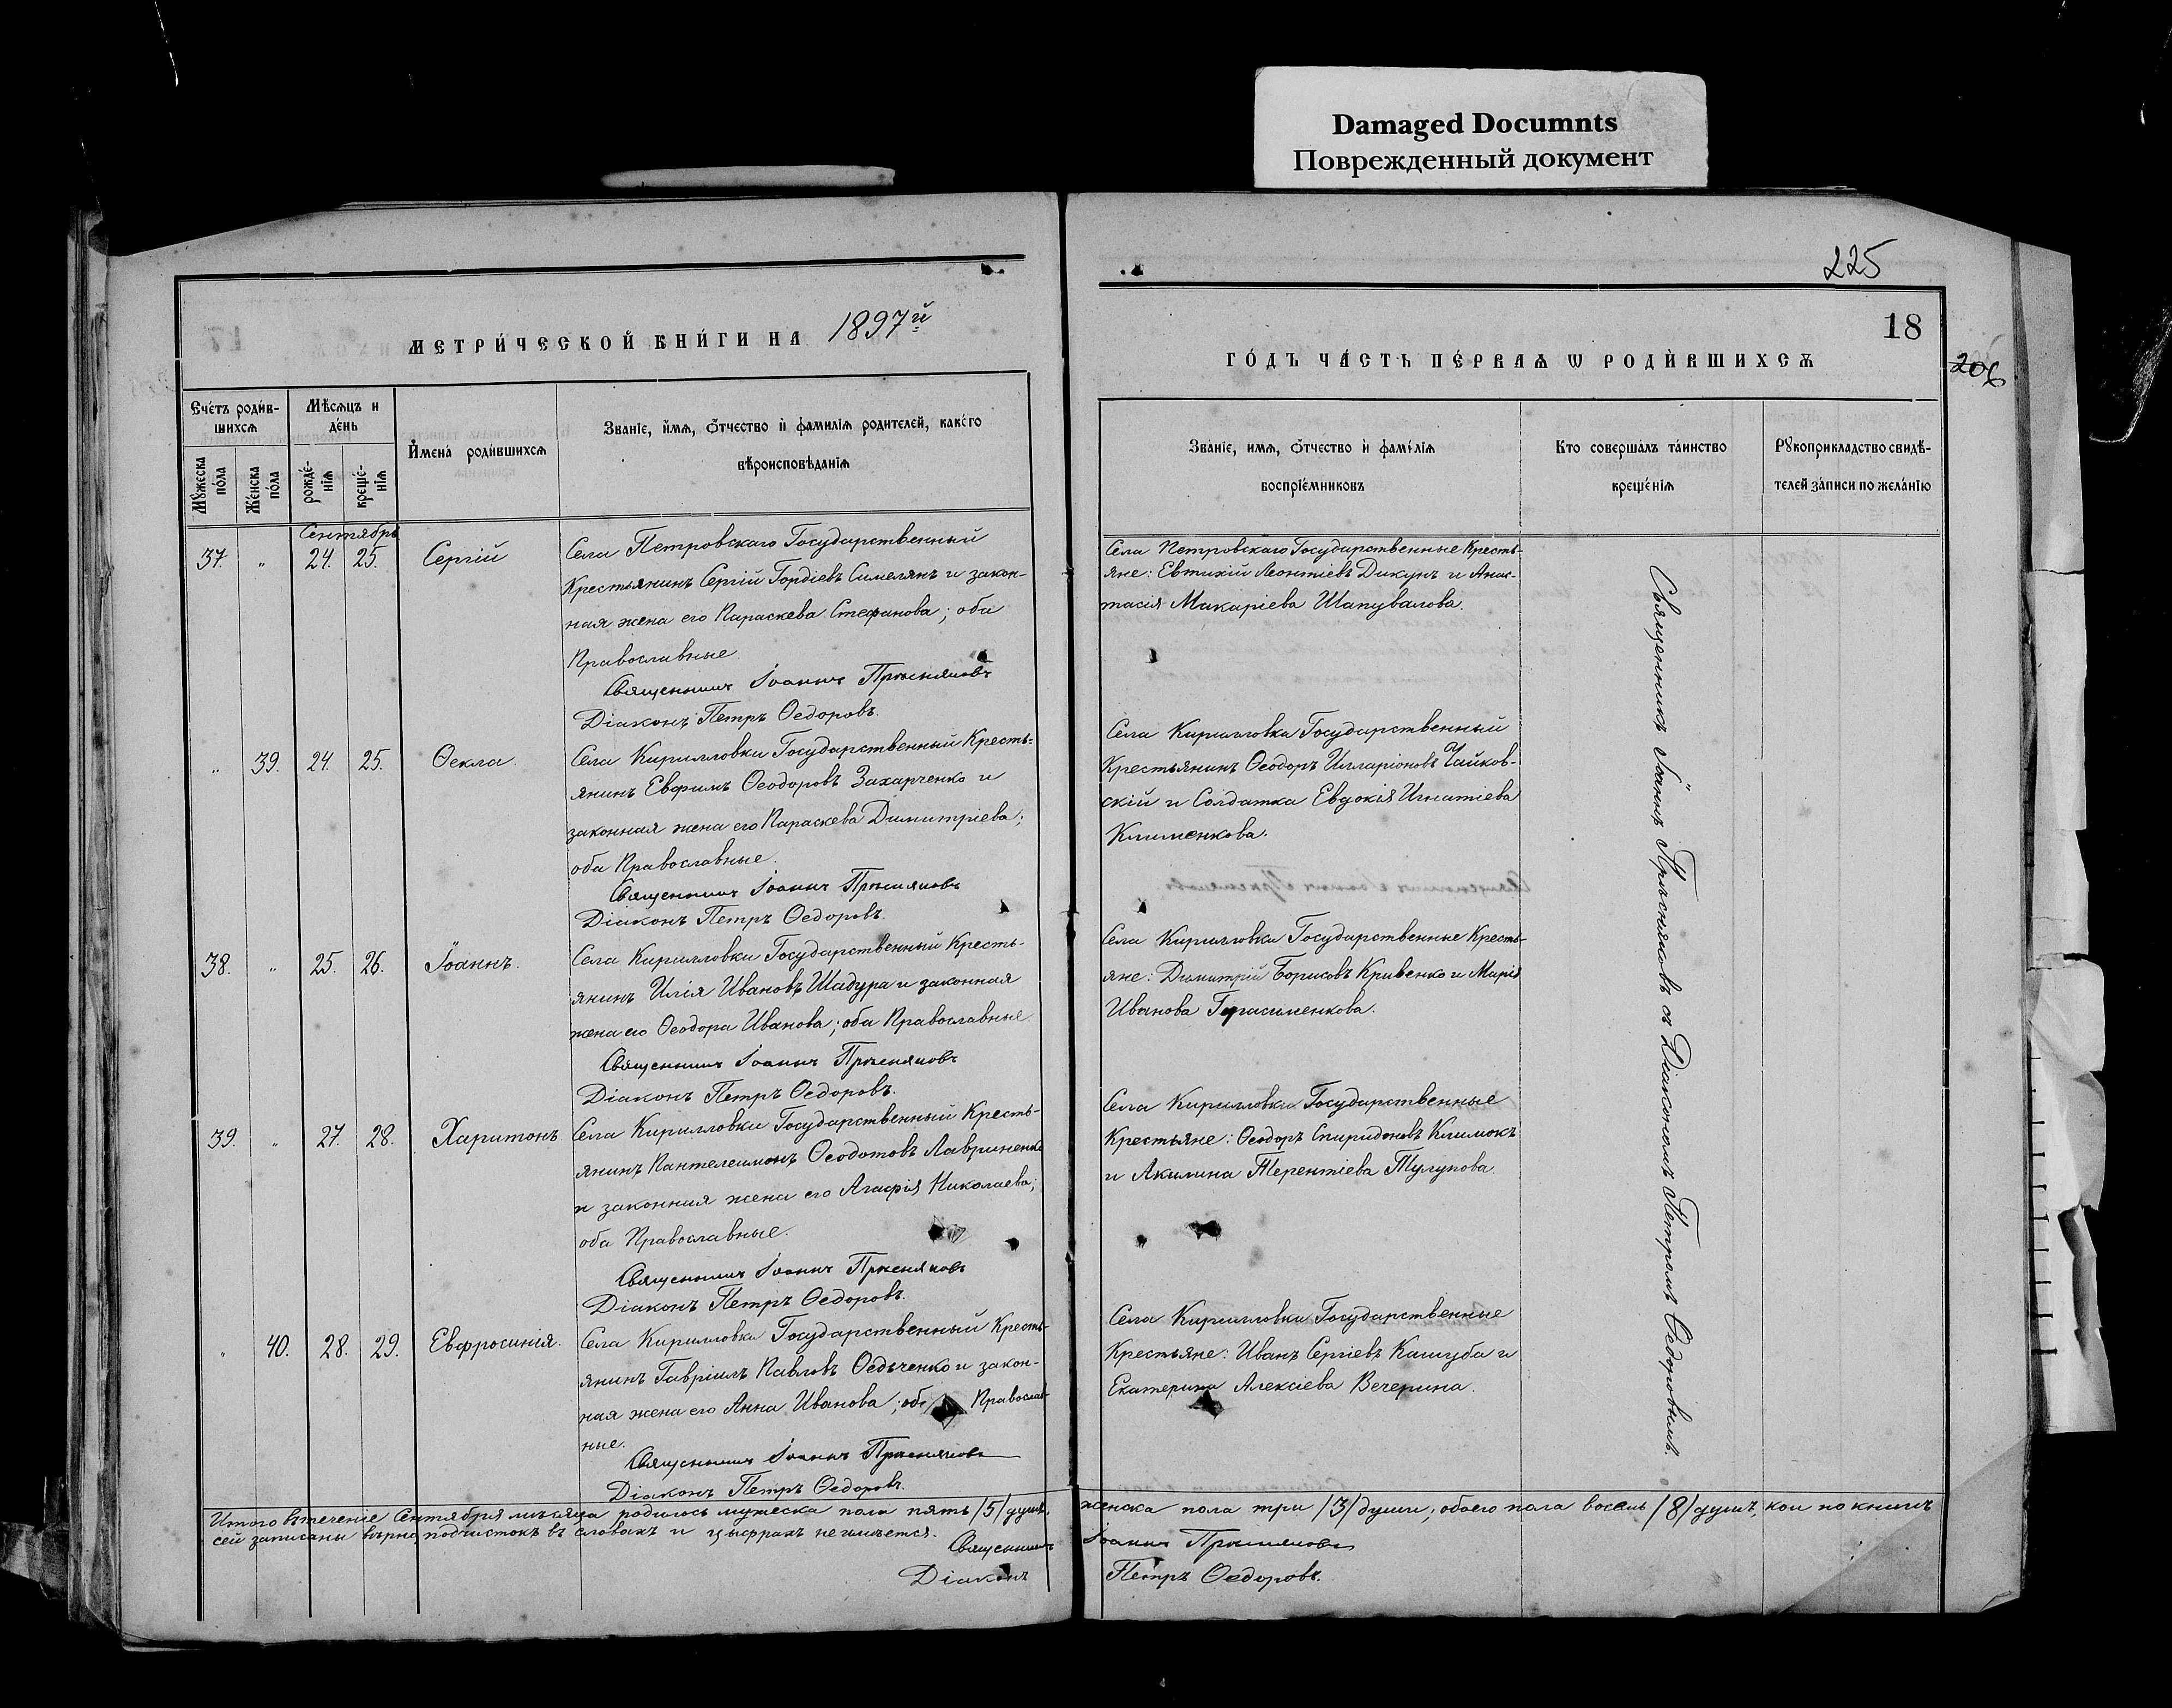 Damaged Documnts
Поврежденный документ
225
МЕТРИ́ЧЕСКОЙ КНИ́ГИ НА 1897й
18
ГО́ДЪ ЧА́СТЬ ПЕ́РВАѦ Ѡ РОДИ́ВШИХСѦ
206
Сче́тъ роди́в-
шихсѧ
Мѣ́сѧцъ и
де́нь
Мꙋ́жеска
по́ла
Же́нска
по́ла
рожде́-
нїѧ
креще́-
нїѧ
И҆мена̀ роди́вшихсѧ
Зва́нїе, и҆́мѧ, ѻ҆́тчество и҆ фами́лїѧ родителей, како́го
вѣроисповѣ́данїѧ
Зва́нїе, имѧ, ѻ҆́тчество и҆ фами́лїѧ
воспрїе́мниковъ
Кто совершалъ та́инство
креще́нїѧ
Рꙋкоприкладство свидѣ́-
телей за́писи по жела́нїю
Сентябрь
37. „ 24. 25. Сергій
Села Петровскаго Государственный
Крестьянинъ Сергій Гордіевъ Симелянъ и закон-
ная жена его Параскева Стефанова; оба
Православные
Священникъ Іоаннъ Прѣсняковъ
Діаконъ Петръ Ѳедоровъ.
Села Петровскаго Государственные Кресть-
яне: Евтихій Леонтіевъ Дикунъ и Анас-
тасія Макаріева Шапувалова.
„ 39. 24. 25. Ѳекла.
Села Кирилловки Государственный Кресть-
янинъ Евфимъ Ѳеодоровъ Захарченко и
законная жена его Параскева Димитріева;
оба Православные.
Священникъ Іоаннъ Прѣсняковъ
Діаконъ Петръ Ѳедоровъ.
Села Кирилловки Государственный
Крестьянинъ Ѳеодоръ Илларіоновъ Чайков-
скій и Солдатка Евдокія Игнатіева
Клименкова.
38. „ 25. 26. Іоаннъ.
Села Кирилловки Государственный Кресть-
янинъ Илія Ивановъ Шадура и законная
жена его Ѳеодора Иванова; оба Православные
Священникъ Іоаннъ Прѣсняковъ
Діаконъ Петръ Ѳедоровъ.
Села Кирилловки Государственные Кресть-
яне: Димитрій Борисовъ Кривенко и Марія
Иванова Герасименкова.
39. „ 27. 28. Харитонъ
Села Кирилловки Государственный Кресть-
янинъ Пантелеимонъ Ѳеодотовъ Лавриненко
и законная жена его Агафія Николаева;
оба Православные.
Священникъ Іоаннъ Прѣсняковъ
Діаконъ Петръ Ѳедоровъ.
Села Кирилловки Государственные
Крестьяне: Ѳеодоръ Спиридоновъ Климокъ
и Акилина Терентіева Тулупова.
„ 40. 28. 29. Евфросинія.
Села Кирилловки Государственный Кресть-
янинъ Гавріилъ Павловъ Ѳедьченко и закон-
ная жена его Анна Иванова; оба Православ-
ные.
Священникъ Іоаннъ Прѣсняковъ
Діаконъ Петръ Ѳедоровъ.
Села Кирилловки Государственные
Крестьяне: Иванъ Сергіевъ Кашуба и
Екатерина Алексіева Вечерина.
Священникъ Іоаннъ Прѣсняковъ съ Діакономъ Петромъ Ѳедоровымъ.
Итого въ теченіе Сентября мѣсяца родилось мужеска пола пять /5/ душъ, женска пола три /3/ души; обоего пола восемь /8/ душъ, кои по книгѣ
сей записаны вѣрно, подчистокъ въ словахъ и цыфрахъ не имѣется.
Священникъ Іоаннъ Прѣсняковъ
Діаконъ Петръ Ѳедоровъ.